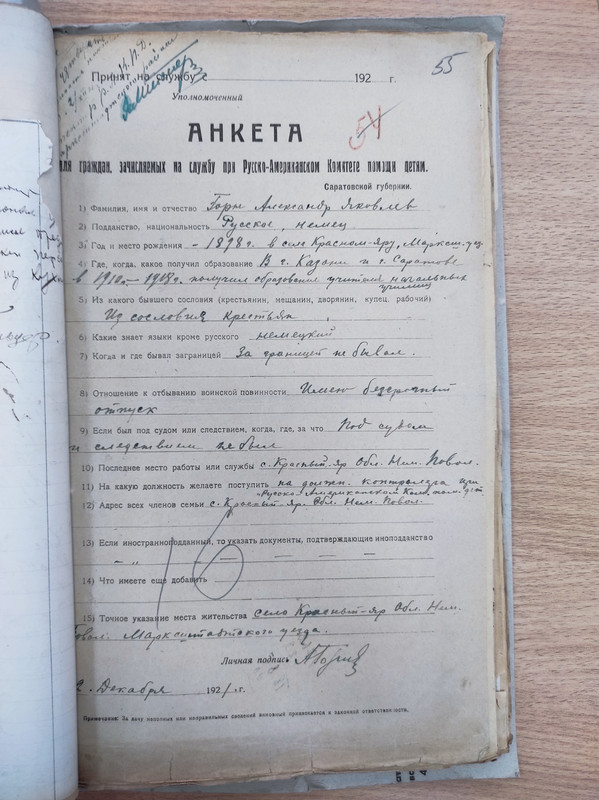 Принят на службу 192 г.
55
Уполномоченный
АНКЕТА
54
для граждан, зачисляемых на службу при Русско-Американском Комитете помощи детям.
Саратовской губернии.
1) Фамилия, имя и отчество Горн Александр Яковлев
2) Подданство, национальность Русское, немец
3) Год и место рождения - 1898 г. в селе Красном-Яру, Марксшт. уез.
4) Где, когда, какое получил образование В г. Казани и г. Саратове
в 1910 - 1918 г. получил образование учителя начальных
училищ
5) Из какого бывшего сословия (крестьянин, мещанин, дворянин, купец, рабочий)
Из сословия крестьян
6) Какие знает языки кроме русского немецкий
7) Когда и где бывал заграницей За границей не бывал.
8) Отношение к отбыванию воинской повинности Имею безсрочный
отпуск
9) Если был под судом или следствием, когда, где, за что Под судом
и следствием не был
10) Последнее место работы или службы с. Красный-яр Обл. Нем. Повол.
11) На какую должность желаете поступить на должн. контролера при
Русско-Американском Ком. пом. дет
12) Адрес всех членов семьи с. Красный-яр. Обл. Нем. Повол.
13) Если иностранноподданный, то указать документы, подтверждающие иноподданство
— „ — — — — —
14) Что имеете еще добавить
16
15) Точное указание места жительства село Красный-яр Обл. Нем.
Повол. Марксштадтского уезда.
Личная подпись АГорн
2. Декабря 1921 г.
Примечание: За дачу неполных или неправильных сведений виновный привлекается к законной ответственности.